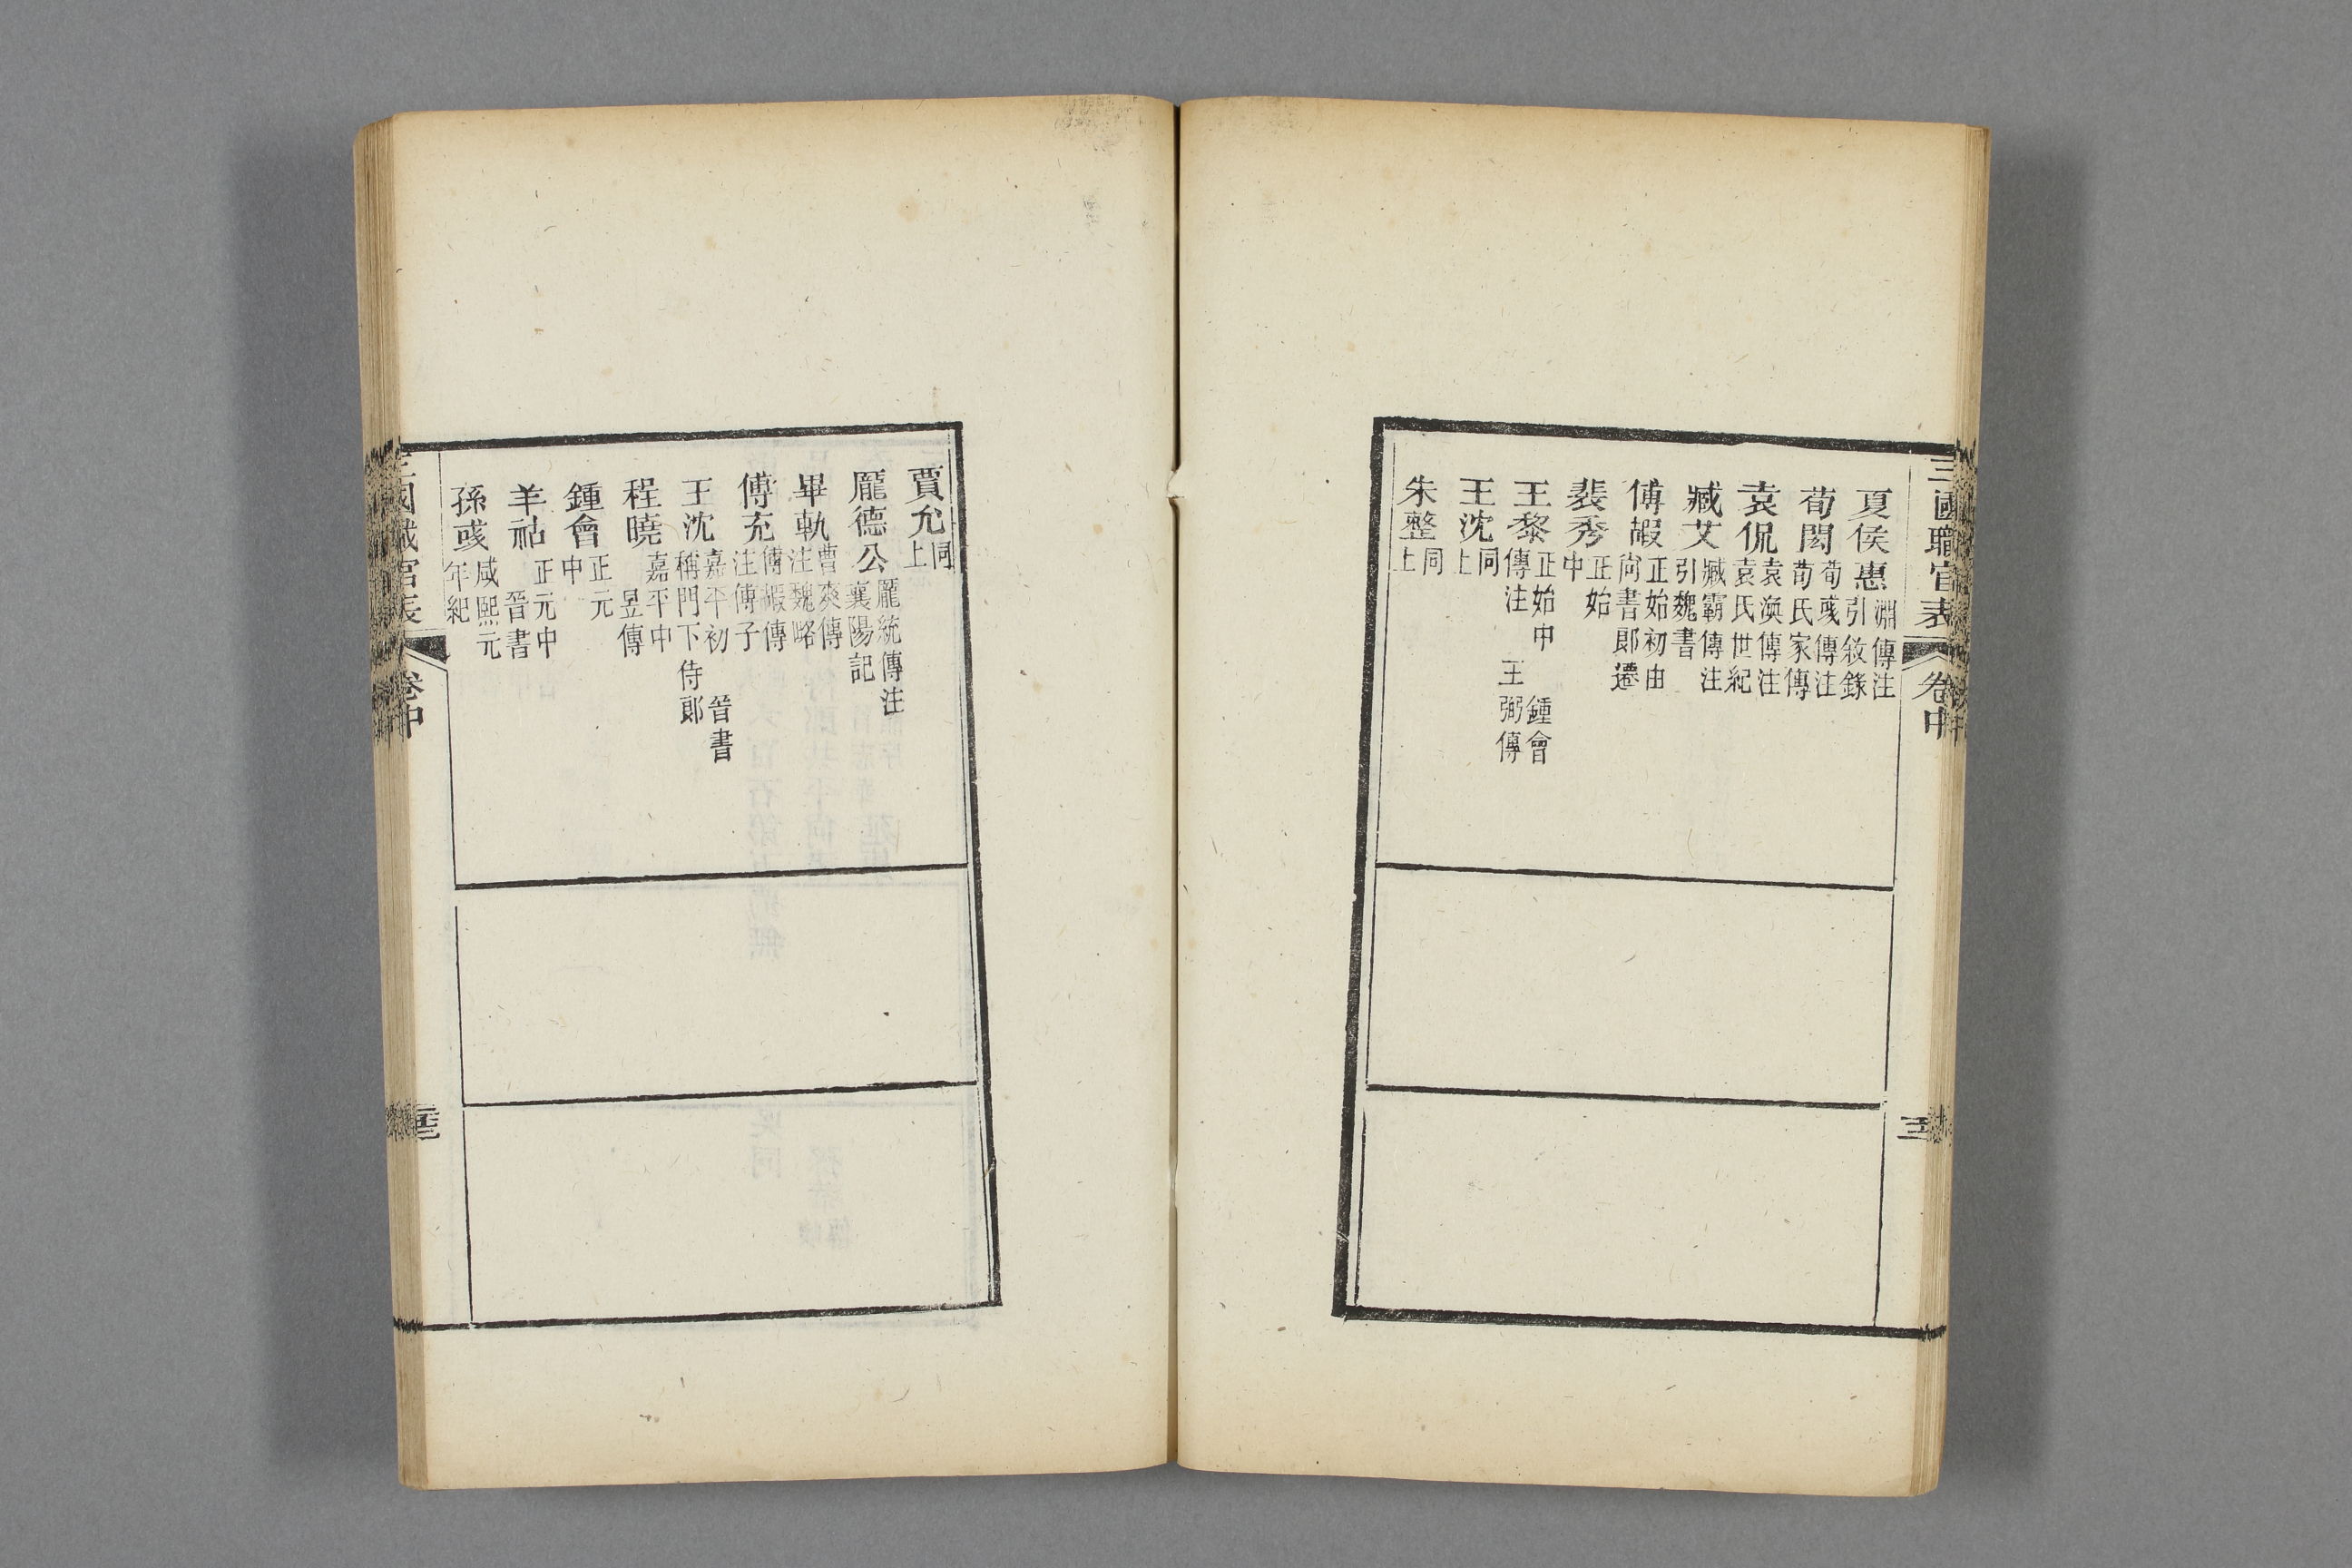 三國職官表 卷中
夏侯惠 淵傳注引敘錄
荀閎 荀彧傳注荀氏家傳
袁侃 袁渙傳注袁氏世紀
臧艾 臧霸傳注引魏書
傅嘏 正始初由尚書郎遷
裴秀 正始中
王黎 正始中 鍾會傳注 王弼傳
王沈 同上
朱整 同上
賈允 同上
龐德公 龐統傳注襄陽記
畢軌 曹爽傳注魏略
傅充 傅嘏傳注傅子
王沈 嘉平初 晉書稱門下侍郎
程曉 嘉平中 昱傳
鍾會 正元中
羊祜 正元中 晉書
孫彧 咸熙元年紀
國職官表 卷中